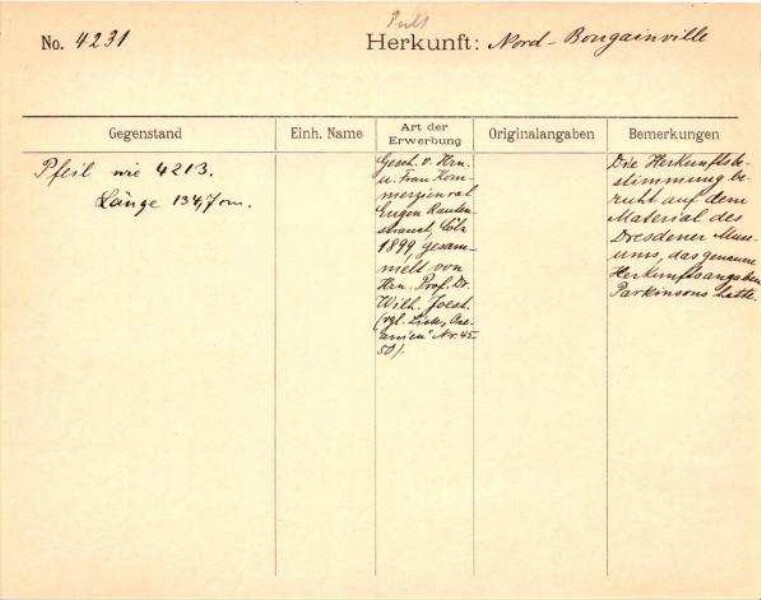 Pult
No. 4231 Herkunft: Nord-Bougainville
Gegenstand
Einh. Name
Art der
Erwerbung
Originalangaben
Bemerkungen
Pfeil wie 4213.
Länge 134,7 cm.
Gesch. v. Hrn.
u. Frau Kom-
merzienrat
Eugen Rauten-
strauch, Cöln
1899, gesam-
melt von
Hrn. Prof. Dr.
Wilh. Joest.
(vgl. Liste „Oce-
anien" Nr. 45-
50).
Die Herkunftsbe-
stimmung be-
ruht auf dem
Material des
Dresdener Muse-
ums, das genauere
Herkunftsangaben
Parkinsons hatte.